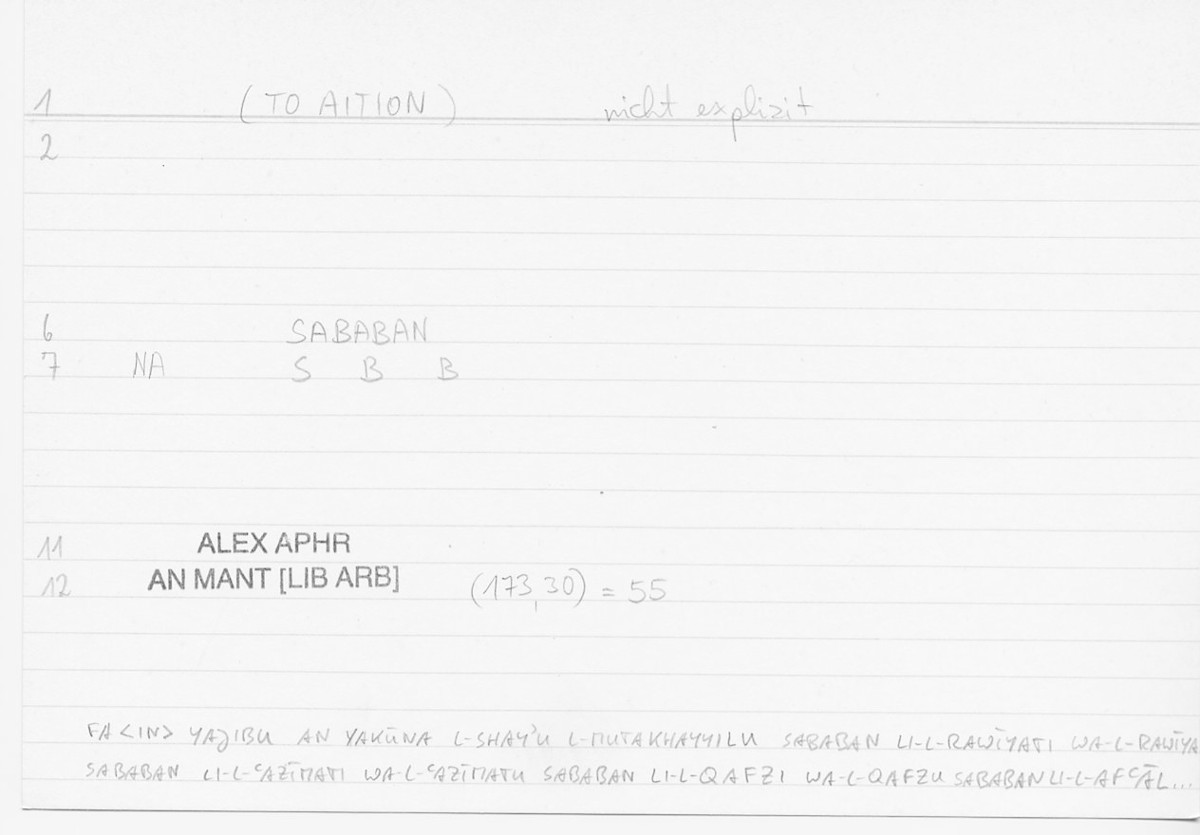 1 (TO AITION) nicht explizit
2
6 SABABAN
7 NA S B B
11 ALEX APHR
12 AN MANT [LIB ARB] (173,30) = 55
FA <IN> YAJIBU AN YAKŪNA L-SHAYʾU L-MUTAKHAYYILU SABABAN LI-L-RAWĪYATI WA-L-RAWĪYA
SABABAN LI-L-ʿAZĪMATI WA-L-ʿAZĪMATU SABABAN LI-L-QAFZI WA-L-QAFZU SABABAN LI-L-AFʿĀL...